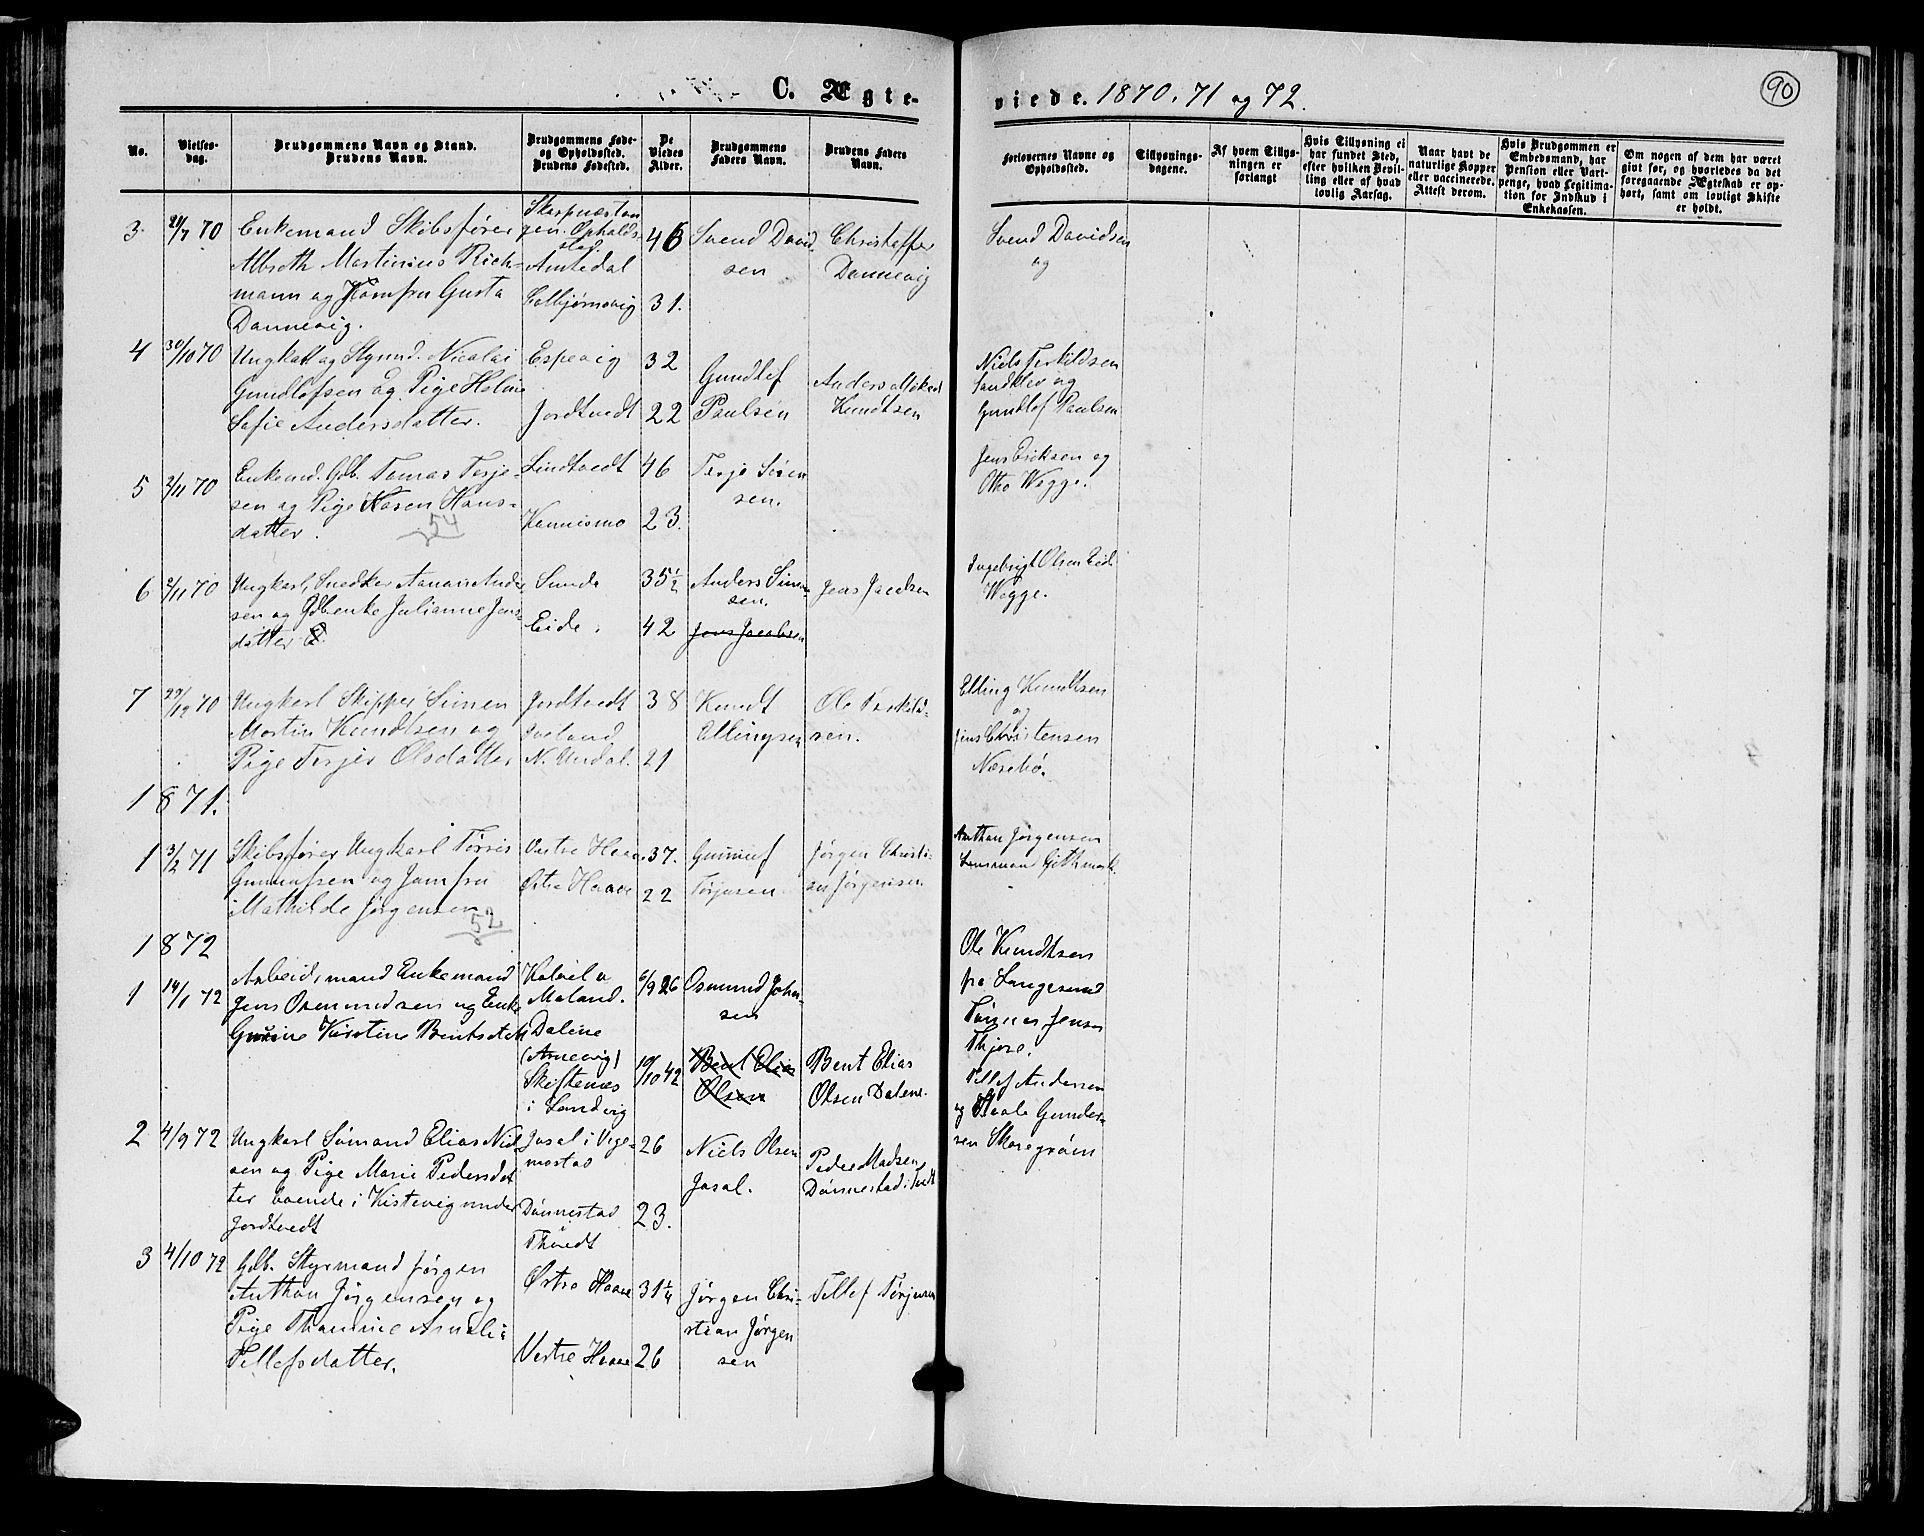 C. Ægte-
viede. 1870. 71 og 72.
90
No.
Vielses-
dag.
Brudgommens Navn og Stand.
Brudens Navn.
Brudgommens Føde-
og Opholdssted.
Brudens Fødested.
De
Viedes
Alder.
Brudgommens
Faders Navn.
Brudens Faders
Navn.
Forlovernes Navne og
Opholdssted.
Tillysnings-
dagene.
Af hvem Tillys-
ningen er
forlangt
Hvis Tillysning ei
har fundet Sted,
efter hvilken Bevil-
ling eller af hvad
lovlig Aarsag.
Naar havt de
naturlige Kopper
eller vaccinerede.
Attest derom.
Hvis Brudgommen er
Embedsmand, har
Pension eller Vart-
penge, hvad Legitima-
tion for Indskud i
Enkekassen.
Om nogen af dem har været
gift før, og hvorledes da det
foregaaende Ægteskab er op-
hørt, samt om lovligt Skifte
er holdt.
3. 21/7 70
Enkemand Skibsfører
Martinius Rich-
mann og Jomfru Gusta
Dannevig.
Opholds-
sted.
46
31.
Svend David-
sen
Christoffer
Dannevig
Svend Davidsen
og
4 30/10 70
Ungkarl og Styrmd. Nicolai
Gundlofsen og Pige Helene
Sofie Andersdatter.
Espevig
Jordtvedt
32
22
Gundlef
Paulsen
Anders
Knudtsen
Niels Terkildsen
og
Gundlof Paulsen
5 2/11 70
Enkemd. Gdb. Tomas Terje-
sen og Pige Karen Hans-
datter.
54
Lindtvedt
46
23.
Terje Sören
sen.
Jens Eriksen og
Otto Wegge.
6 2/11 70
Ungkarl, Snedker Anders
sen og Gdbenke Julianne Jens-
datter
Sunde
Eide.
35½
42
Anders Simon-
sen.
Jens Jacobsen
Jens Jacobsen
Ingebrigt Olsen Eide
Wegge.
7 29/12 70
Ungkarl Skipper Simen
Martin Knudtsen og
Pige Terjer Olsdatter
Jordtvedt
N. Undal.
38
21
Knudt
Ellingsen
Ole Torkild-
sen.
Elling Knudtsen
og
Jens Christensen
Næsebø.
1871.
1 3/2 71
Skibsfører Ungkarl Tørres
Gunnufsen og Jomfru
Mathilde Jørgensen
52
Vestre Haave
Østre Haave
37.
22
Gunnuf
Terjesen
Jørgen Christi-
sen Jørgensen
Anthon Jørgensen
1872
1 14/1 72
Arbeidsmand Enkemand
Jens Osmundsen og Enke
Gurine Kirstine Bentsdatt
Moland.
Dalene
(Arnevig)
Skiftenes
i Landvig
6/9 26
10/10 42
Osmund John-
sen
Bent Elias
Olsen
Bent Elias
Olsen Dalene.
Ole Knudtsen
fra Langesund
Tønnes Jensen
Thjore.
Tellef Andersen
og Gunder-
sen Skaregrøm
2 4/9 72
Ungkarl Sømand Elias Niel
sen og Pige Marie Pedersdat
ter boende i Kistevig under
Jordtvedt
Josal i Vige-
mostad
Dönnestad
Thvedt
26
23.
Niels Olsen
Josal.
Peder Madsen
Dönnestad i Tvedt
3 4/10 72
Gdb. Styrmand Jørgen
Anthon Jørgensen og
Pige Thomine Amalie
Tellefsdatter.
Østre Haave
Vestre Haave
31¼
26
Jørgen Chri-
stian Jørgen
sen
Tellef Terjesen